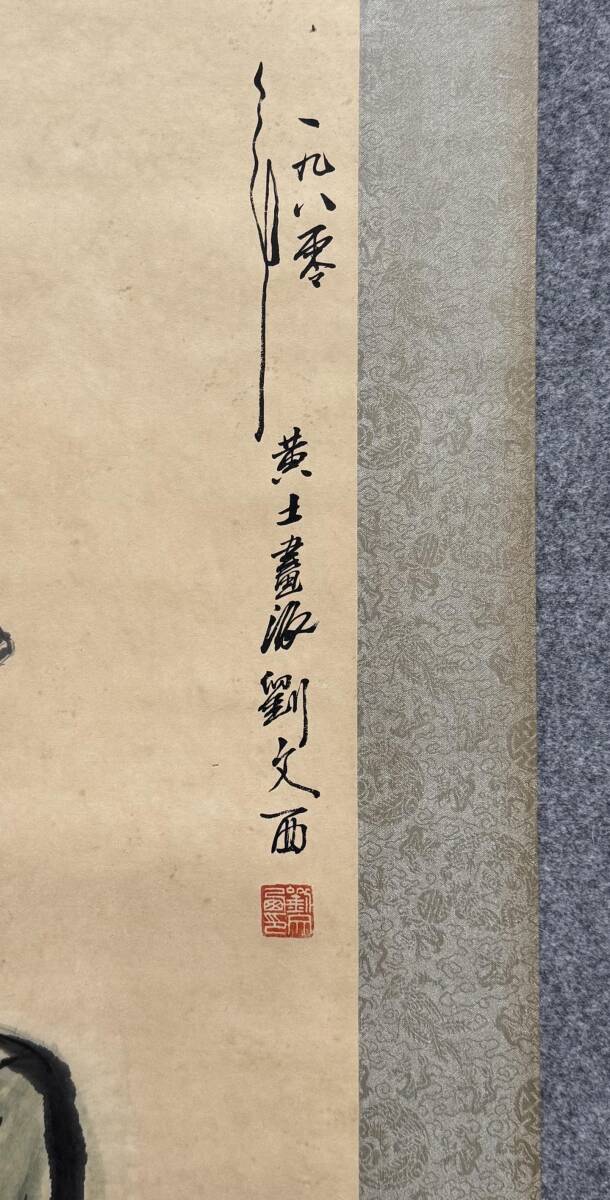 一九八零年
黄土畫派劉文西
劉文西印